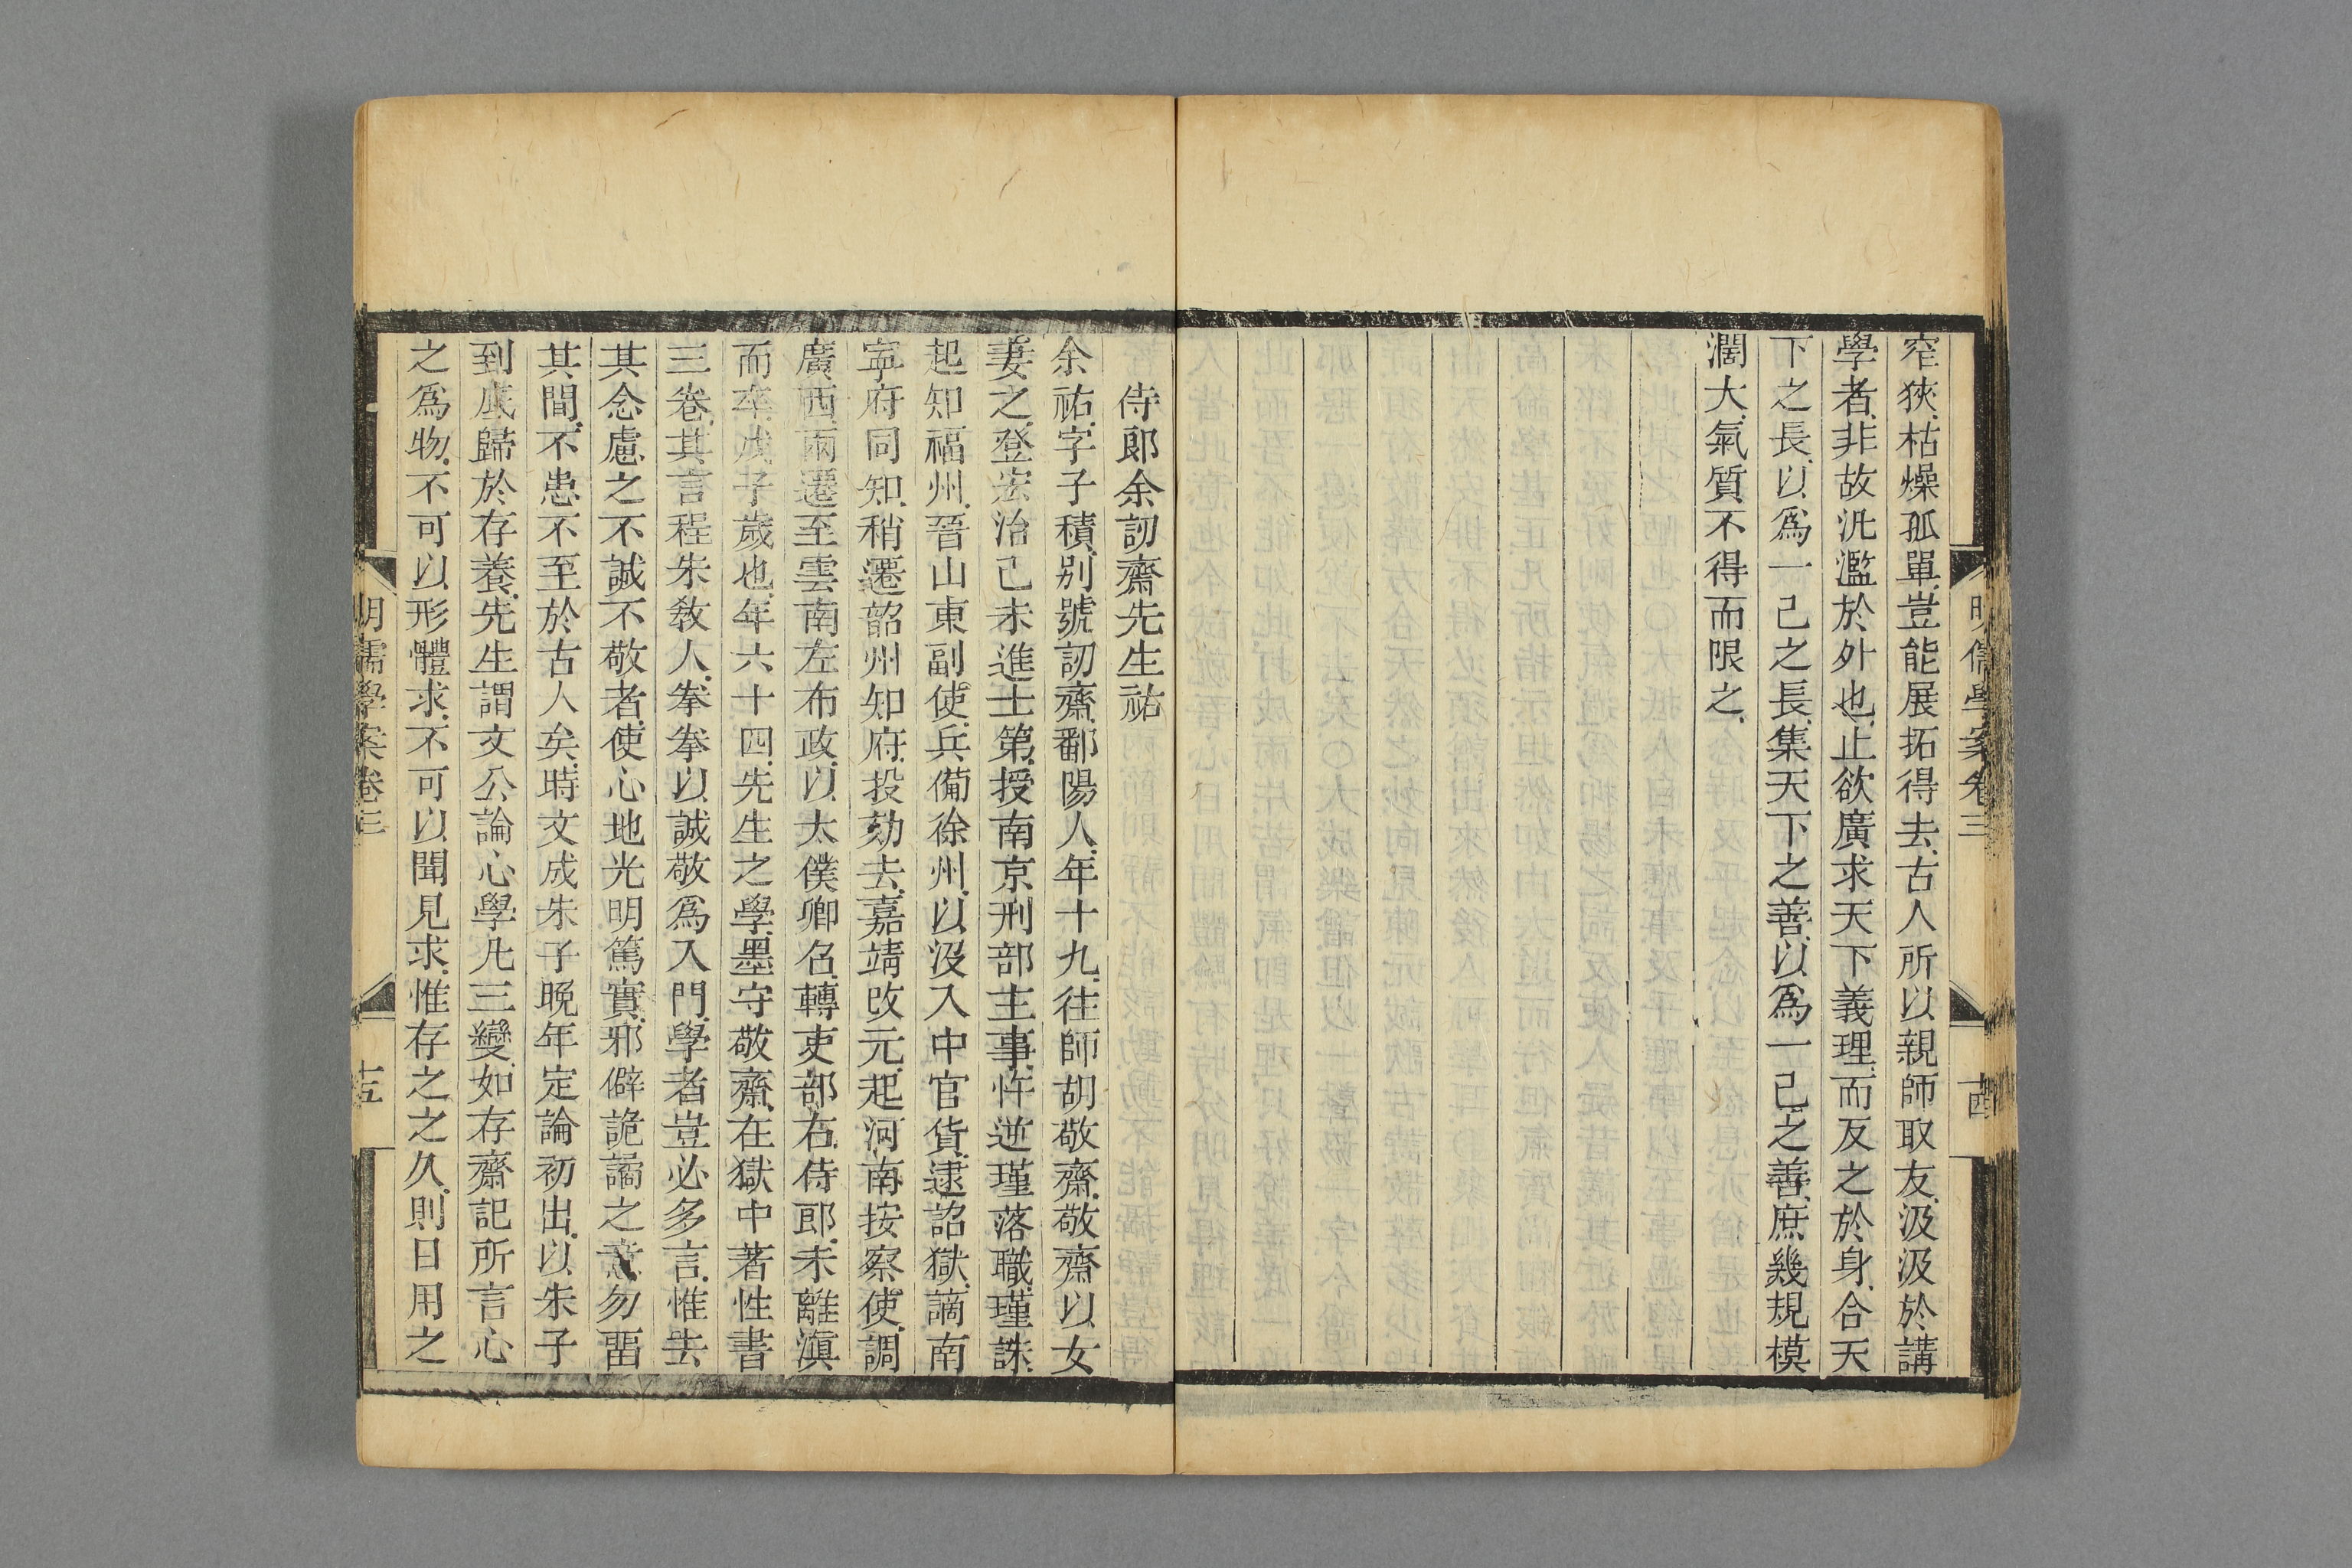 明儒學案卷三
窄狹、枯燥孤單、豈能展拓得去、古人所以親師取友、汲汲於講
學者、非故汎濫於外也、止欲廣求天下義理、而反之於身、合天
下之長、以爲一己之長、集天下之善、以爲一己之善、庶幾規模
濶大、氣質不得而限之、
侍郎余訒齋先生祐
余祐、字子積、别號訒齋、鄱陽人、年十九、往師胡敬齋、敬齋以女
妻之、登宏治己未進士第、授南京刑部主事、忤逆瑾落職、瑾誅、
起知福州、晉山東副使、兵備徐州、以沒入中官貨、逮詔獄、謫南
寧府同知、稍遷韶州知府、投劾去、嘉靖改元、起河南按察使、調
廣西、兩遷至雲南左布政、以太僕卿召、轉吏部右侍郎、未離滇
而卒、戊子歲也、年六十四、先生之學、墨守敬齋、在獄中著性書
三卷、其言程朱敎人、拳拳以誠敬爲入門、學者豈必多言、惟去
其念慮之不誠不敬者、使心地光明篤實、邪僻詭譎之意勿畱
其間、不患不至於古人矣、時文成朱子晚年定論初出、以朱子
到底歸於存養、先生謂文公論心學凡三變、如存齋記所言心
之爲物、不可以形體求、不可以聞見求、惟存之之久、則日用之
明儒學案卷三
十五